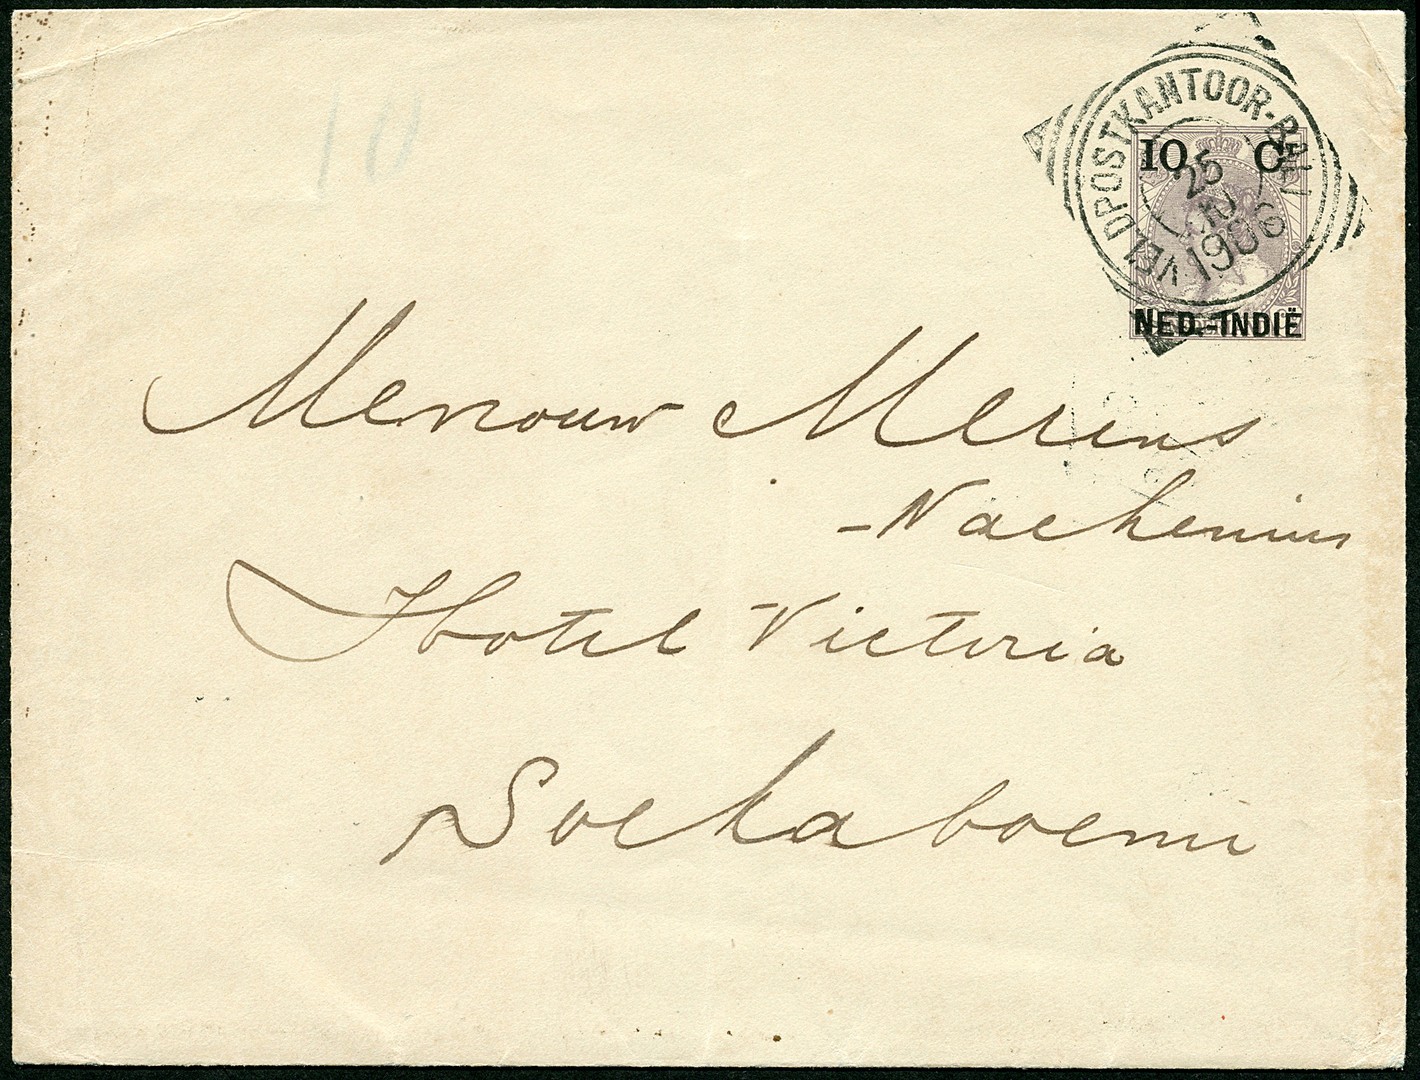 10
VELDPOSTKANTOOR-BALI
10 C
25
1906
NED.-INDIË
Mevrouw Merens
-Nachenius
Hotel Victoria
Soekaboemi